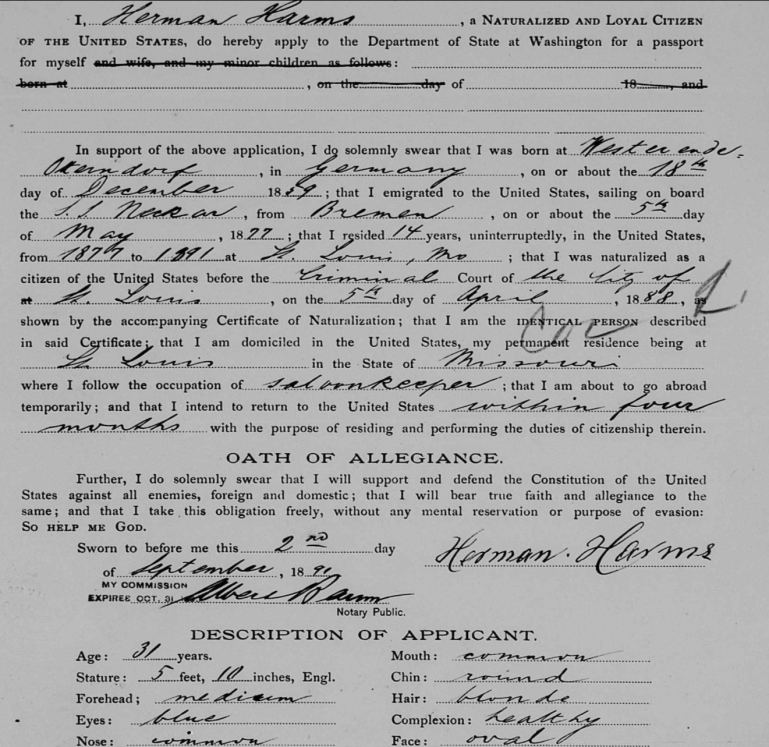 I, Herman Harms, a NATURALIZED AND LOYAL CITIZEN
OF THE UNITED STATES, do hereby apply to the Department of State at Washington for a passport
for myself and wife, and my minor children as follows:
born at , on the day of 18 , and
In support of the above application, I do solemnly swear that I was born at Westerende-
Otterndorf, in Germany, on or about the 18th
day of December 1859; that I emigrated to the United States, sailing on board
the S.S. Neckar, from Bremen, on or about the 5th day
of May, 1877; that I resided 14 years, uninterruptedly, in the United States,
from 1877 to 1891 at St. Louis, Mo; that I was naturalized as a
citizen of the United States before the Criminal Court of the City of
at St. Louis, on the 5th day of April, 1888, as
shown by the accompanying Certificate of Naturalization; that I am the IDENTICAL PERSON described
in said Certificate; that I am domiciled in the United States, my permanent residence being at
St. Louis in the State of Missouri
where I follow the occupation of saloonkeeper; that I am about to go abroad
temporarily; and that I intend to return to the United States within four
months with the purpose of residing and performing the duties of citizenship therein.
OATH OF ALLEGIANCE.
Further, I do solemnly swear that I will support and defend the Constitution of the United
States against all enemies, foreign and domestic; that I will bear true faith and allegiance to the
same; and that I take this obligation freely, without any mental reservation or purpose of evasion:
SO HELP ME GOD.
Sworn to before me this 2nd day
Herman Harms
of September, 1891
MY COMMISSION
EXPIRES OCT. 31 Albert
Notary Public.
DESCRIPTION OF APPLICANT.
Age: 31 years. Mouth: common
Stature: 5 feet, 10 inches, Engl. Chin: round
Forehead; medium Hair: blonde
Eyes: blue Complexion: healthy
Nose: common Face: oval